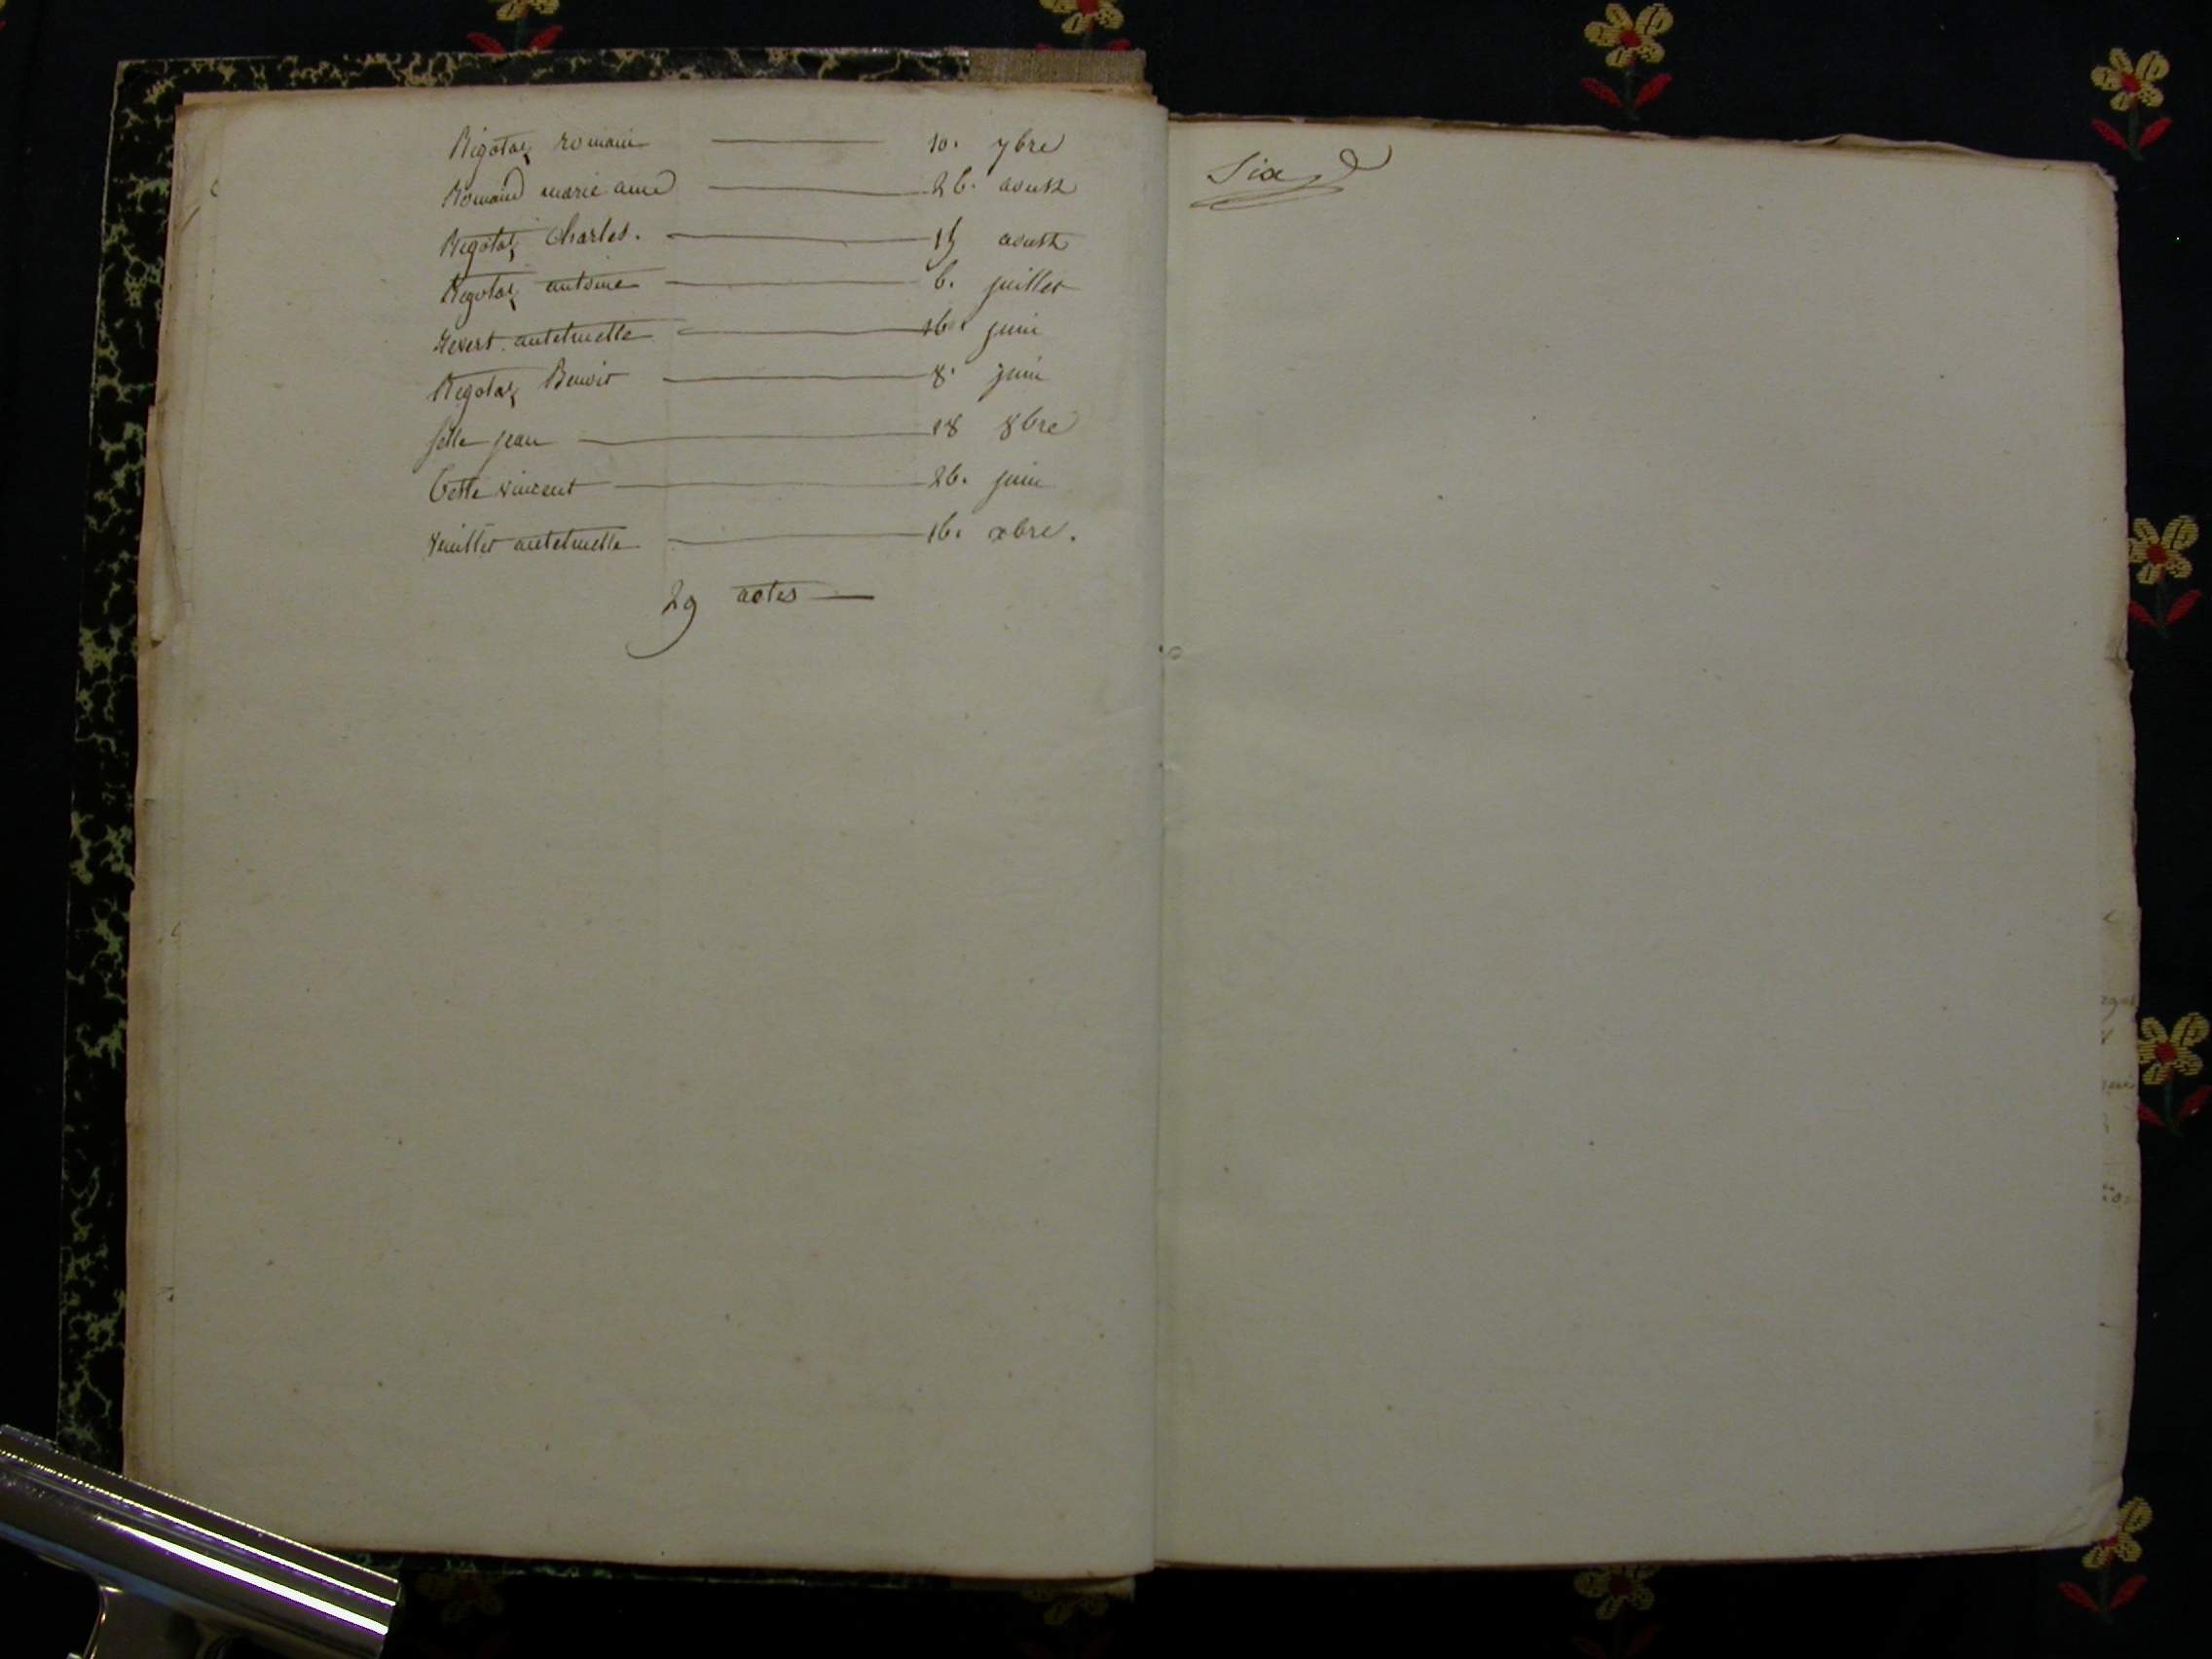 Rigotaz romain 10. 7bre
Romand marie anne 26. aoust
Rigotaz Charles. 15 aoust
Rigotaz antoine 6. juillet
antelmette 16. juin
Rigotaz Benoit 8. juin
Selle jean 18 8bre
vincent 26. juin
antelmette 16. xbre.
29 actes
Six